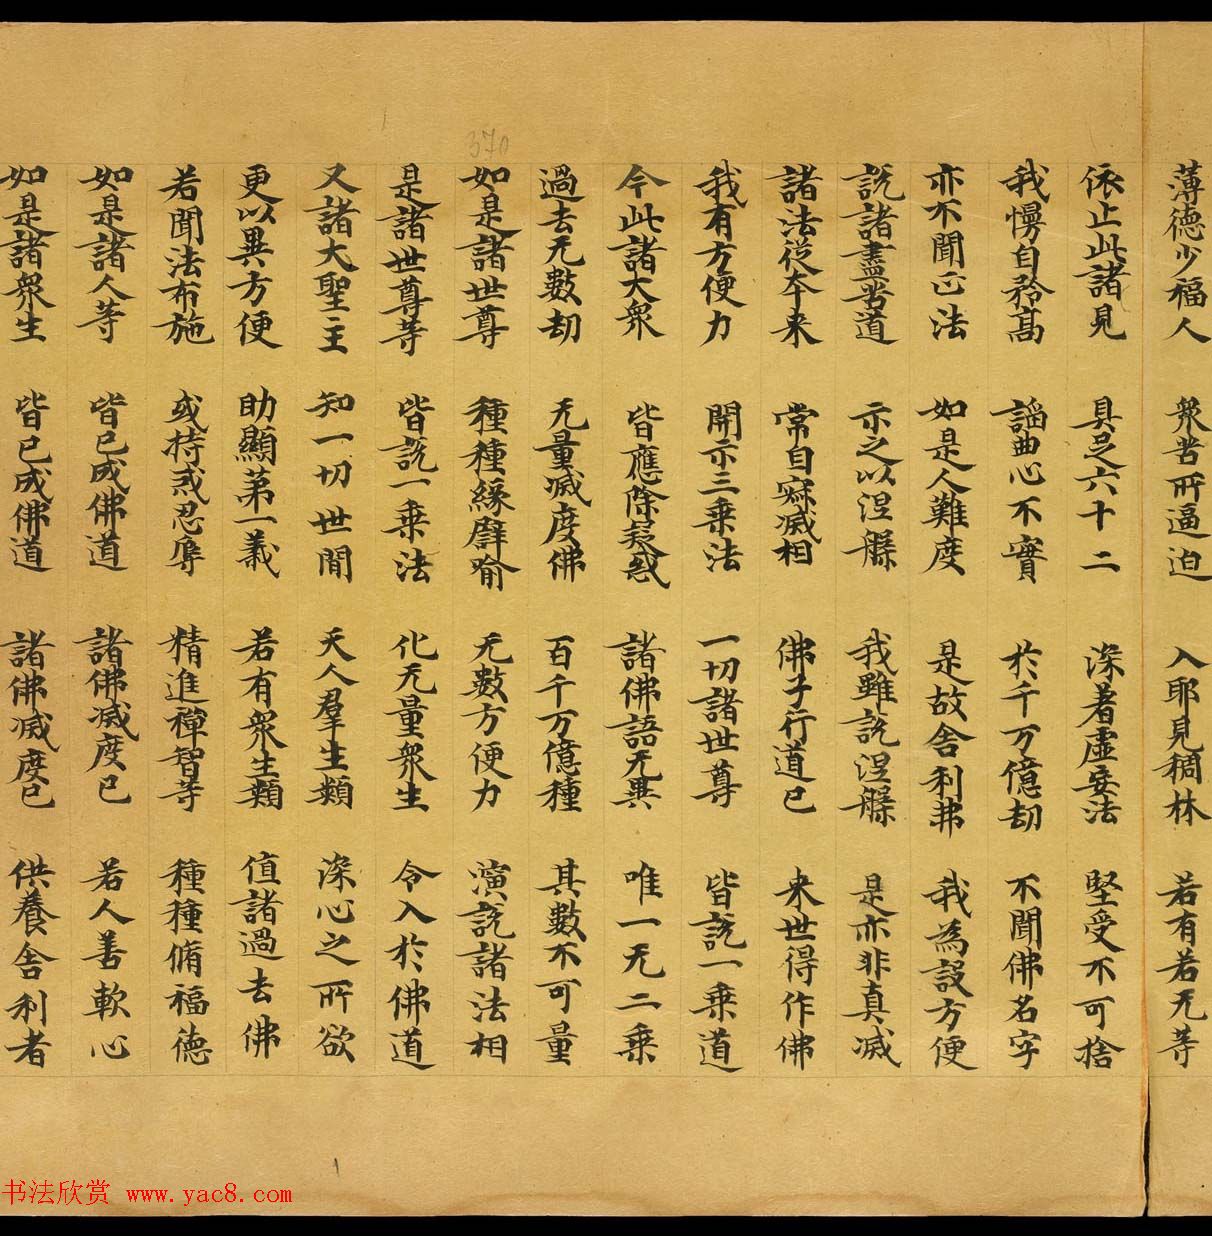 薄德少福人 衆苦所逼迫 入耶見稠林 若有若无等
依止此諸見 具足六十二 深著虛妄法 堅受不可捨
我慢自矜高 謟曲心不實 於千万億劫 不聞佛名字
亦不聞正法 如是人難度 是故舍利弗 我為設方便
説諸盡苦道 示之以涅槃 我雖説涅槃 是亦非真滅
諸法從本来 常自寂滅相 佛子行道已 来世得作佛
我有方便力 開示三乗法 一切諸世尊 皆説一乗道
今此諸大衆 皆應除疑惑 諸佛語无異 唯一无二乗
過去无數劫 无量滅度佛 百千万億種 其數不可量
如是諸世尊 種種緣譬喻 无數方便力 演説諸法相
是諸世尊等 皆説一乗法 化无量衆生 令入於佛道
又諸大聖主 知一切世間 天人羣生類 深心之所欲
更以異方便 助顯第一義 若有衆生類 值諸過去佛
若聞法布施 或持戒忍辱 精進禪智等 種種脩福德
如是諸人等 皆已成佛道 諸佛滅度已 若人善軟心
如是諸衆生 皆已成佛道 諸佛滅度已 供養舍利者
370
书法欣赏 www.yac8.com